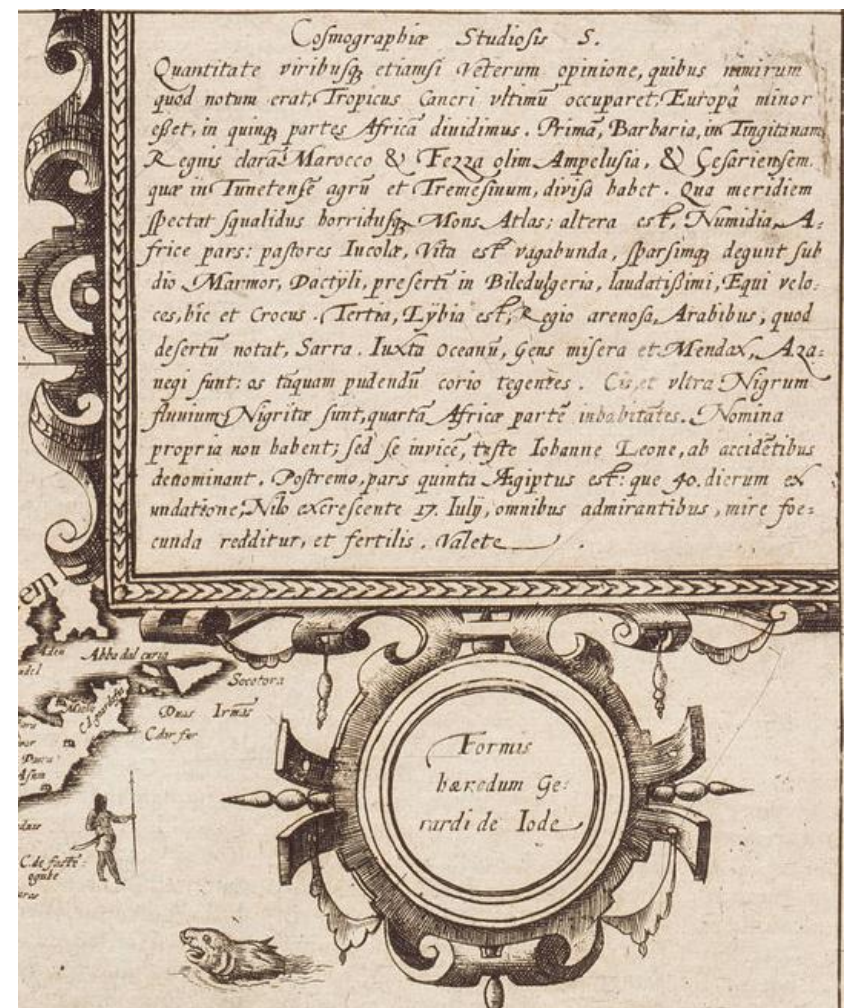 Cosmographiæ Studiosis S.
Quantitate viribusq́ʒ etiamsi Veterum opinione, quibus nimirum
quod notum erat, Tropicus Cancri vltimũ occuparet, Europâ minor
eßet, in quinqʒ partes Africã diuidimus. Primã, Barbaria, in Tingitanam,
Regnis clarã Marocco & Fezza olim Ampelusia, & Cesariensem.
quæ in Tunetensẽ agrũ et Tremesinum, diuisa habet. Qua meridiem
spectat squalidus horridusqʒ Mons Atlas; altera est, Numidia, A:
frice pars: pastores Incolæ, Vita est vagabunda, sparsimqʒ degunt sub
dio Marmor, Dactyli, presertĩ in Biledulgeria, laudatißimi, Equi velo:
ces, hîc et Crocus. Tertia, Lybia est, Regio arenosa, Arabibus, quod
desertũ notat, Sarra. Iuxta Oceanũ, Gens misera et Mendax, Aza:
negi sunt: os tãquam pudendũ corio tegentes. Cis, et vltra Nigrum
fluuium, Nigritæ sunt, quartã Africæ partẽ inhabitãtes. Nomina
propria non habent; sed se inuicẽ, teste Iohanne Leone, ab accidẽtibus
denominant. Postremo, pars quinta Ægiptus est: que 40. dierum ex
undatione, Nilo excrescente 17. Iulij, omnibus admirantibus, mire foe:
cunda redditur, et fertilis. Valete.
em
Aden
Abba dal curia
adel
Socotora
Duas Irmãs
C. dar fur
C. de
ogube
Formis
hæredum Ge:
rardi de Iode